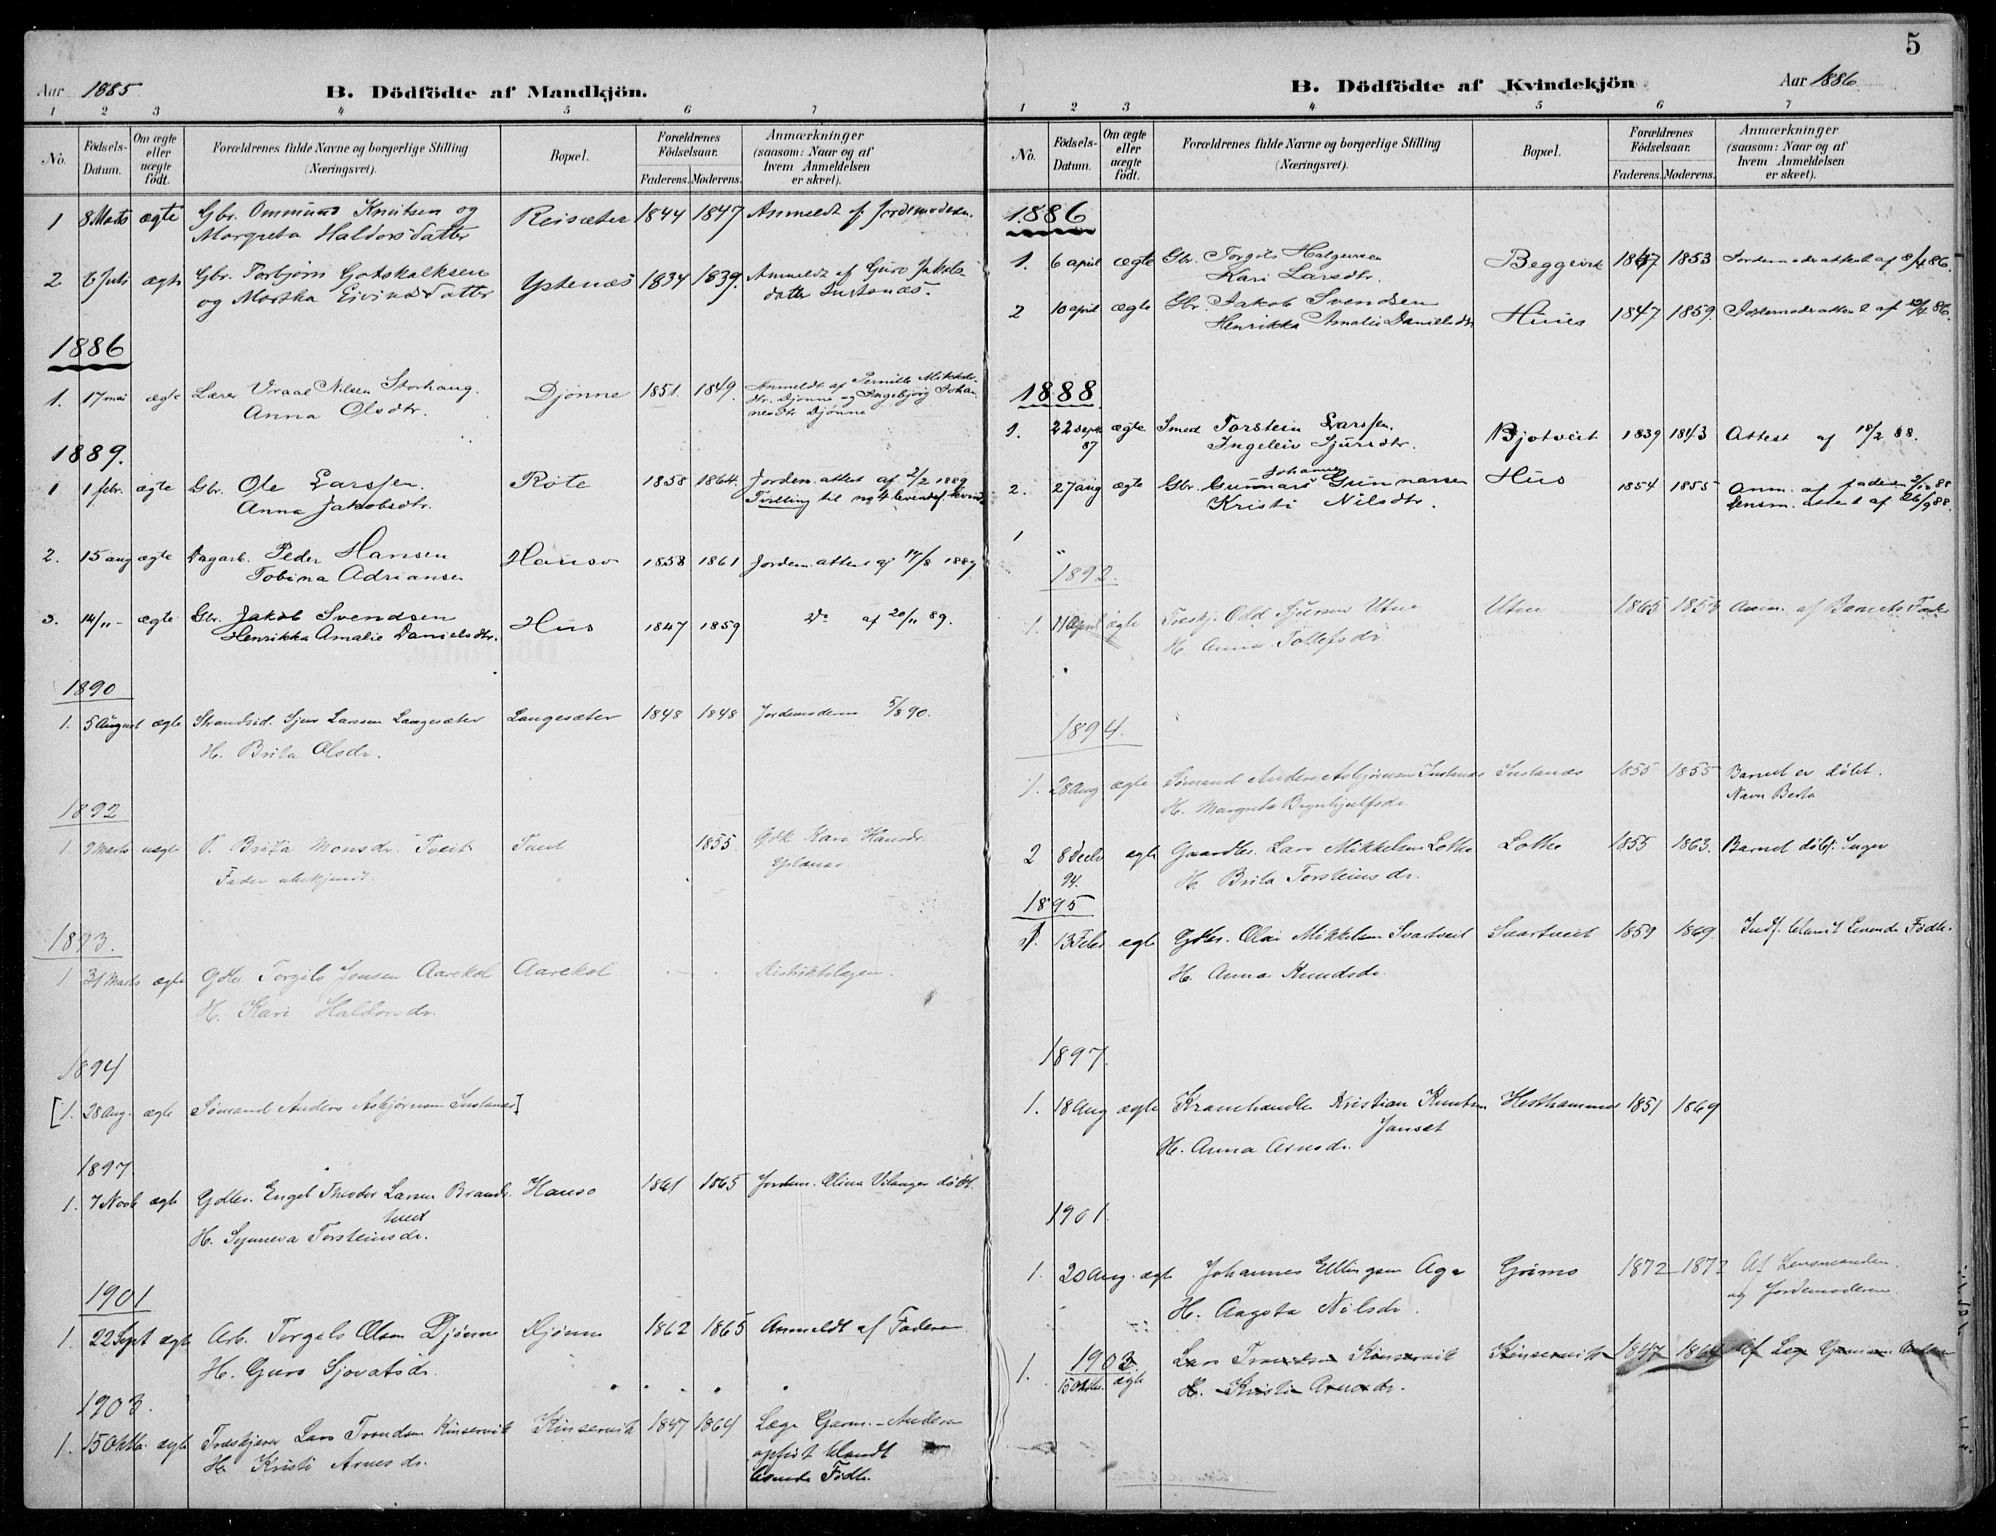 Aar 1885
B. Dödfödte af Mandkjön.
1 2 3 4 5 6 7
No. Födsels-Datum. Om ægte eller uægte födt. Forældrenes fulde Navne og borgerlige Stilling (Næringsvei). Bopæl. Forældrenes Födselsaar. Faderens. Moderens. Anmærkninger (saasom: Naar og af hvem Anmeldelsen er skeet).
1 8 Marts ægte Gbr. Ommund Knutsen og Reisæter 1844 1847 Anmeldt af Jordemoderen.
Margreta Haldorsdatter
2 6 Juli ægte Gbr. Torbjörn Gotskalksen Ystenæs 1834 1839. Anmeldt af Guro Jakobs
og Martha Eivindsdatter datter Instenæs.
1886
1. 17 mai ægte Lærer Vraal Nilsen Storhaug. Djönne 1851. 1849. Anmeldt af Pernille Mikkels-
Anna Olsdtr. dtr. Djönne og Ingebjörg Johan
nesdtr Djönne
1889.
1 1 febr. ægte Gbr. Ole Larssen. Röte 1858 1864. Jordem. attest af 2/2 1889
Anna Jakobsdtr. Tvilling til no 4 levendef. kvind
2. 15 aug ægte Dagarb. Peder Hansen Hauso 1858 1861 Jordem. attest af 17/8 1889
Tobina Adriansen
3. 14/11 - ægte Gbr. Jakob Svendsen Hus 1847 1859 Do af 20/11 89.
Henrikka Amalie Danielsdtr.
1890
1. 5 August ægte Strandsid. Sjur Larssen Langesæter Langesæter 1848 1848 Jordemoderen 5/8 90.
H. Brita Olsdr.
1892
1. 9 Marts uægte P. Brita Monsdr. Tveit Tveit 1855 Gdk Kari Hansdr.
Fader ubekjendt
1893.
1 31 Marts ægte Gdbr Torgils Jonsen Aarekol Aarekol - - Distriktslægen.
H. Kari Haldorsdr.
1894
[1. 28 Aug. ægte Sömand Anders Asbjörnsen Instanes]
1897
1. 7 Novb ægte Gdbr. Engel Theodor Larsen Brands- Hauso 1861 1865 Jordem. Olina Vilanger döbt.
tveit
H. Synneva Torsteinsdr.
1901
1. 22 Sept ægte Arb. Torgils Olsen Djönne Djönne 1862 1865 Anmeldt af Faderen
H. Guro Sjovatsdr.
1903.
1. 15 Oktbr. ægte Træskjærer Lars Trondsen Kinservik Kinservik 1847 1864 Læge Garm.-Andersen
H. Kristi Arnesdr. opfört blandt
levende Födte.
5
B. Dödfödte af Kvindekjön
Aar 1886
1 2 3 4 5 6 7
No. Födsels-Datum. Om ægte eller uægte födt. Forældrenes fulde Navne og borgerlige Stilling (Næringsvei). Bopæl. Forældrenes Födselsaar. Faderens. Moderens. Anmærkninger (saasom: Naar og af hvem Anmeldelsen er skeet).
1886
1. 6 april ægte Gbr. Torgils Helgesen Beggevik 1847 1853 Jordemoderattest af 8/4 86.
Kari Larsdtr.
2 10 april ægte Gbr. Jakob Svendsen Huus 1847 1859. Jordemoderattest af 12/4 86.
Henrikka Amalie Danielsdtr
1888.
1. 22 Septr 87 ægte Smed Torstein Larssen. Bjotveit 1839 1843 Attest af 18/2 88.
Ingeleiv Sjursdtr.
2. 27 aug ægte Gbr. Gunnars Johannes Gunnarsen Hus 1854 1855 Anm. af faderen 3/10 88
Kristi Nilsdtr. Lensm. attest af 26/9 88.
1
"
1892.
1. 11 April ægte Træskj. Odd Sjursen Utne Utne 1865 1859 Anm. af Barnets Fader
H. Anna Tollefsdr.
1894.
1. 28 Aug ægte Sömand Anders Asbjörnsen Instanes Instanæs 1855 1855 Barnet er döbt.
H. Margreta Brynhjulfsdr. Navn Berta
2 8 Decbr 94. ægte Gaardbr. Lars Mikkelsen Lothe Lothe 1855 1863. Barnet döbt: Inger
H. Brita Torsteinsdr.
1895
1. 13 Febr. ægte Gdbr. Olav Mikkelsen Svartveit Svartveit 1859 1869. Indf. blandt Levende Födte.
H. Anna Knudsdr.
1897.
1. 18 Aug ægte Kramhandler Kristian Knutsen Hesthammer 1851 1869
Janset
H. Anna Arnesdr.
1901.
1. 20 Aug. ægte Johannes Ellingsen Aga Grimo 1872 1872 Af Lensmanden.
H. Augota Nilsdr. og Jordemoderen
1903
1. 15 Oktbr. ægte Lars Trondsen Kinservik Kinservik 1847 1864 Af Læge Garman Andersen
H. Kristi Arnesdr.